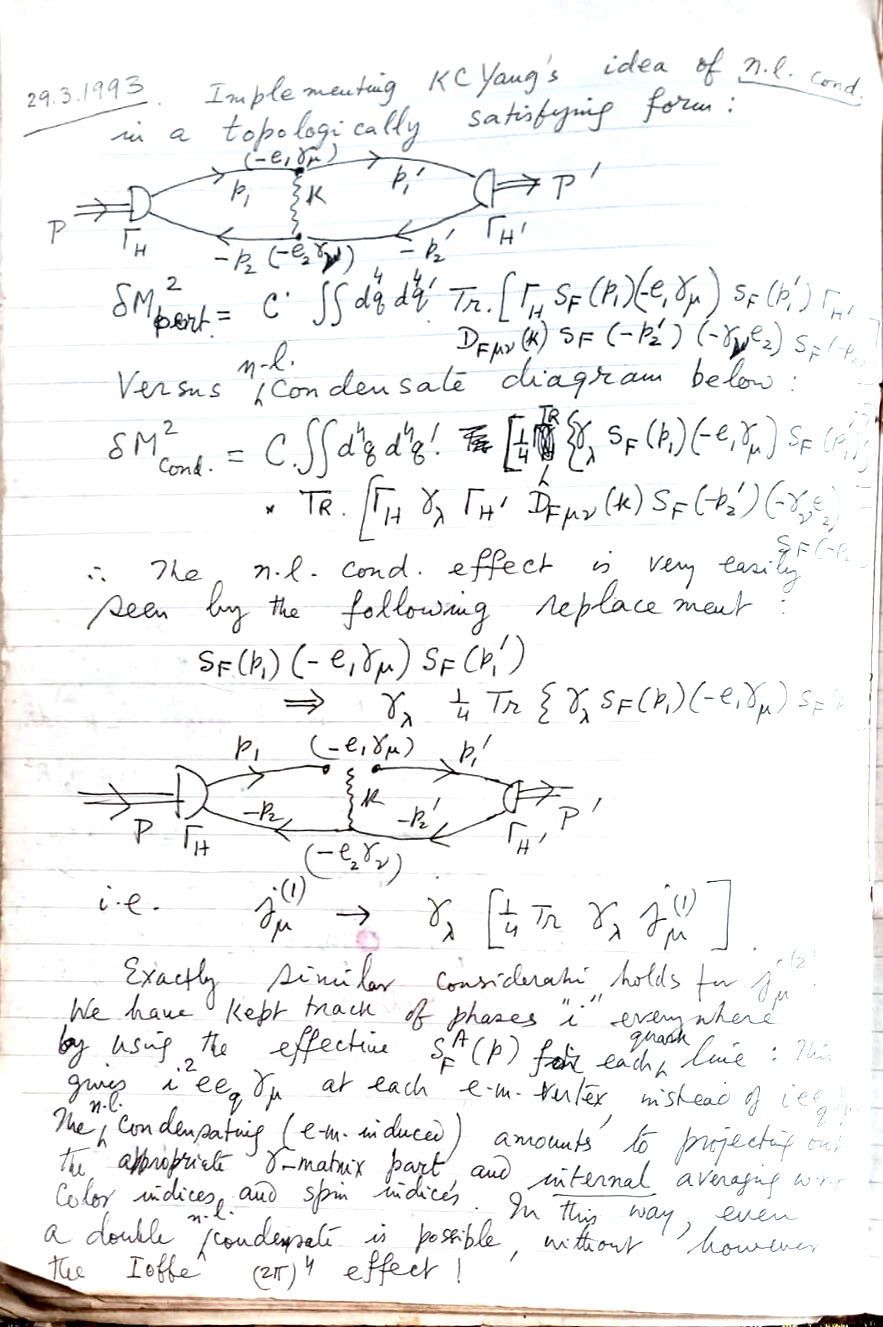 29.3.1993. Implementing KC Yang's idea of n.l. cond.
in a topologically satisfying form:
(-e₁γμ)
p₁ K p₁'
P Γ_H Γ_H' P'
-p₂ (-e₂γν) -p₂'
δM²pert. = C ∫∫ d⁴q d⁴q' Tr. [Γ_H S_F(p₁)(-e₁γμ) S_F(p₁') Γ_H'
D_Fμν(k) S_F(-p₂') (-γν e₂) S_F(-p₂
Versus n-l. Condensate diagram below:
δM²Cond. = C. ∫∫ d⁴q d⁴q'. [¼ TR {γλ S_F(p₁)(-e₁γμ) S_F(p₁')
× TR. [Γ_H γλ Γ_H' D_Fμν(k) S_F(-p₂') (-γν e₂)
S_F(-p₂
∴ The n.l. cond. effect is very easily
seen by the following replacement:
S_F(p₁)(-e₁γμ) S_F(p₁')
⇒ γλ ¼ Tr {γλ S_F(p₁)(-e₁γμ) S_F
p₁ (-e₁γμ) p₁'
K
-p₂ -p₂'
P Γ_H Γ_H' P'
(-e₂γν)
i.e. jμ⁽¹⁾ → γλ [¼ Tr γλ jμ⁽¹⁾].
Exactly similar consideratn holds for jμ⁽²⁾.
We have kept track of phases "i" everywhere
by using the effective S_F^A(p) for each quark line: This
gives i²ee_qγμ at each e-m. vertex, instead of iee_q
The n-l. condensating (e-m. induced) amounts to projecting out
the appropriate γ-matrix part and internal averaging w.r.
Color indices, and spin indices. In this way, even
a double n-l. condensate is possible, without however
the Ioffe (2π)⁴ effect!